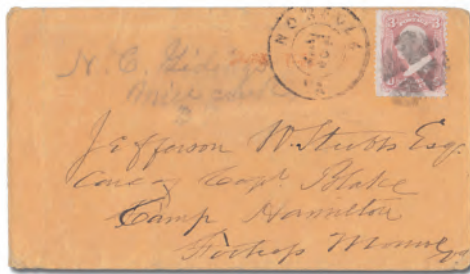 NORFOLK
N. C.
3 3
Jefferson W. Stubbs Esq
Care of Capt. Blake
Camp Hamilton
Fortress Monroe